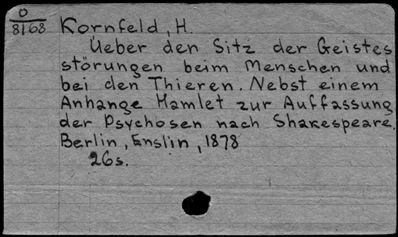 O
8168 Kornfeld, H.
Ueber den Sitz der Geistes
störungen beim Menschen und
bei den Thieren. Nebst einem
Anhange Hamlet zur Auffassung
der Psychosen nach Shakespeare.
Berlin, Enslin, 1878
26s.